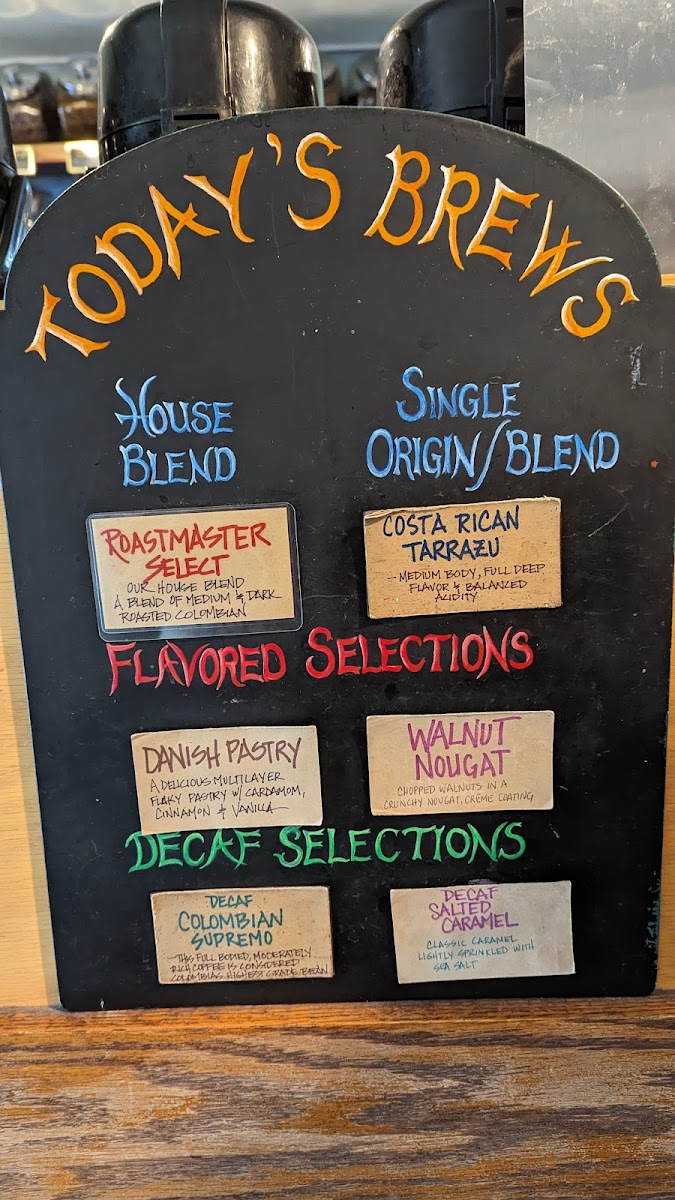 TODAY'S BREWS
HOUSE
BLEND
SINGLE
ORIGIN/BLEND
ROASTMASTER
SELECT
OUR HOUSE BLEND
A BLEND OF MEDIUM & DARK
ROASTED COLOMBIAN
COSTA RICAN
TARRAZU
- MEDIUM BODY, FULL DEEP
FLAVOR & BALANCED
ACIDITY
FLAVORED SELECTIONS
DANISH PASTRY
A DELICIOUS MULTILAYER
FLAKY PASTRY W/ CARDAMOM,
CINNAMON & VANILLA
WALNUT
NOUGAT
CHOPPED WALNUTS IN A
CRUNCHY NOUGAT, CRÈME COATING
DECAF SELECTIONS
DECAF
COLOMBIAN
SUPREMO
- THIS FULL BODIED, MODERATELY
RICH COFFEE IS CONSIDERED
COLOMBIAS HIGHEST GRADE BEAN
DECAF
SALTED
CARAMEL
CLASSIC CARAMEL
LIGHTLY SPRINKLED WITH
SEA SALT